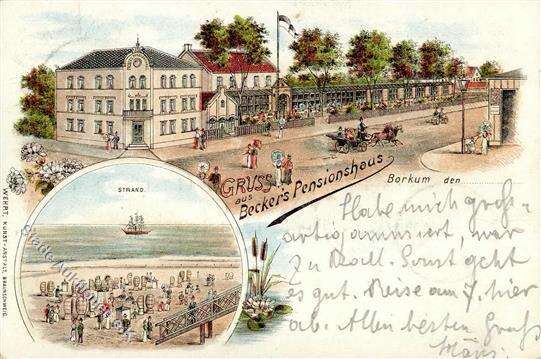 GRUSS
aus
Becker's Pensionshaus
Borkum den
STRAND.
WEHRT. KUNST-ANSTALT, BRAUNSCHWEIG.
Habe mich groß-
artig amüsiert, war
zu Sonst geht
es gut. Reise am 7. hier
ab. Allen besten Gruß